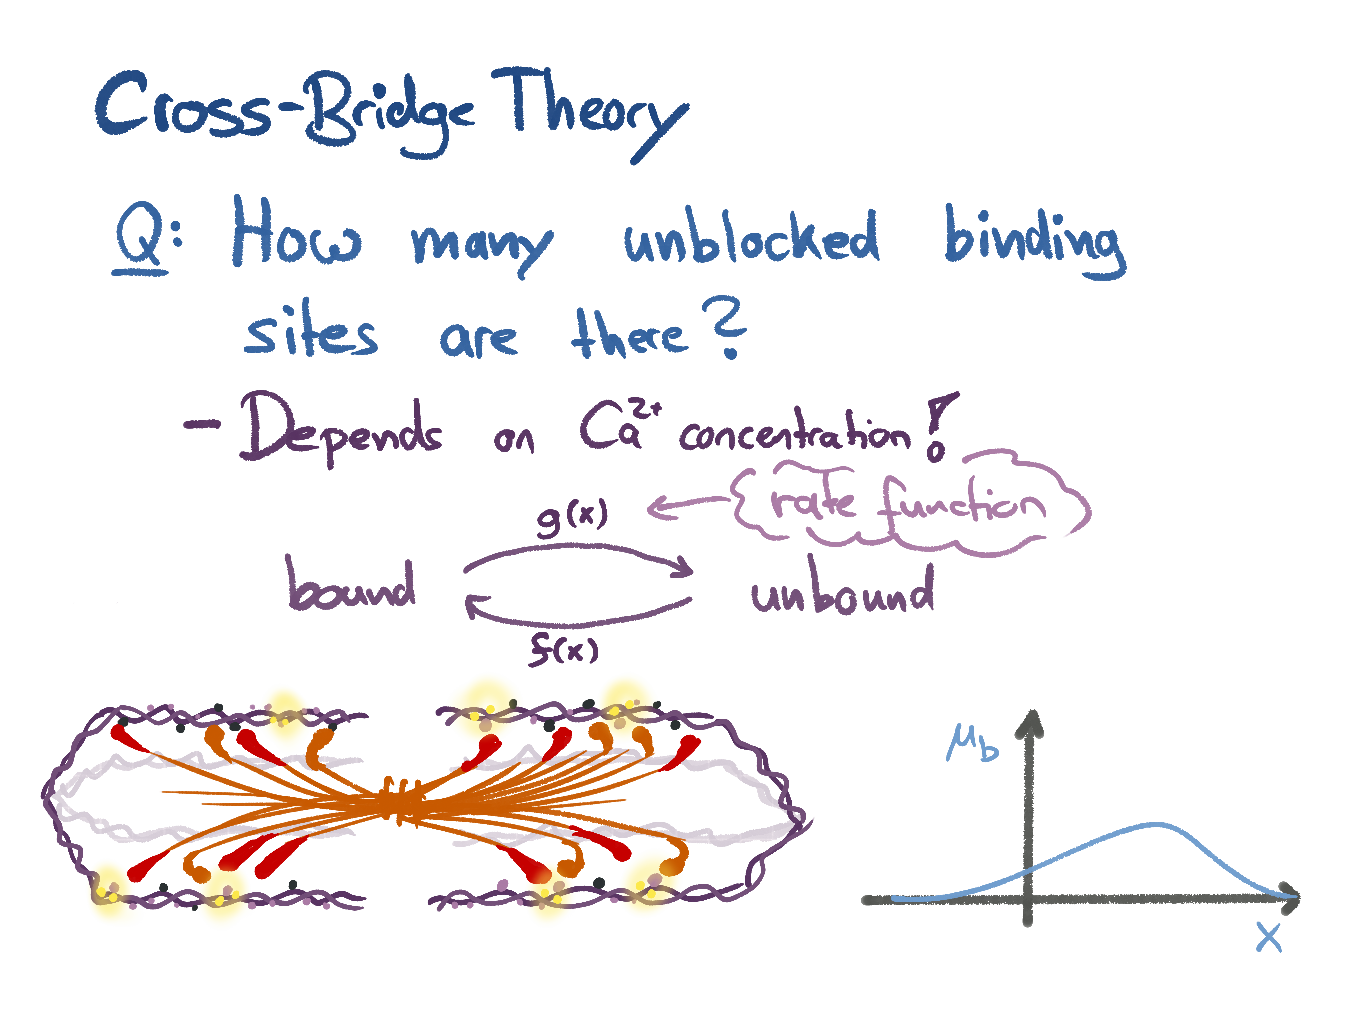 Cross-Bridge Theory
Q: How many unblocked binding
sites are there?
- Depends on Ca²⁺ concentration!
rate function
g(x)
bound unbound
f(x)
μb
x